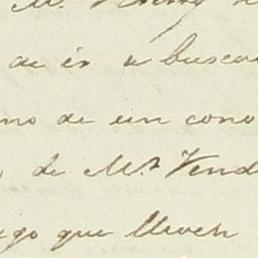 de ir a busca
mo de un cono
de Mr. Vend
go que lleven